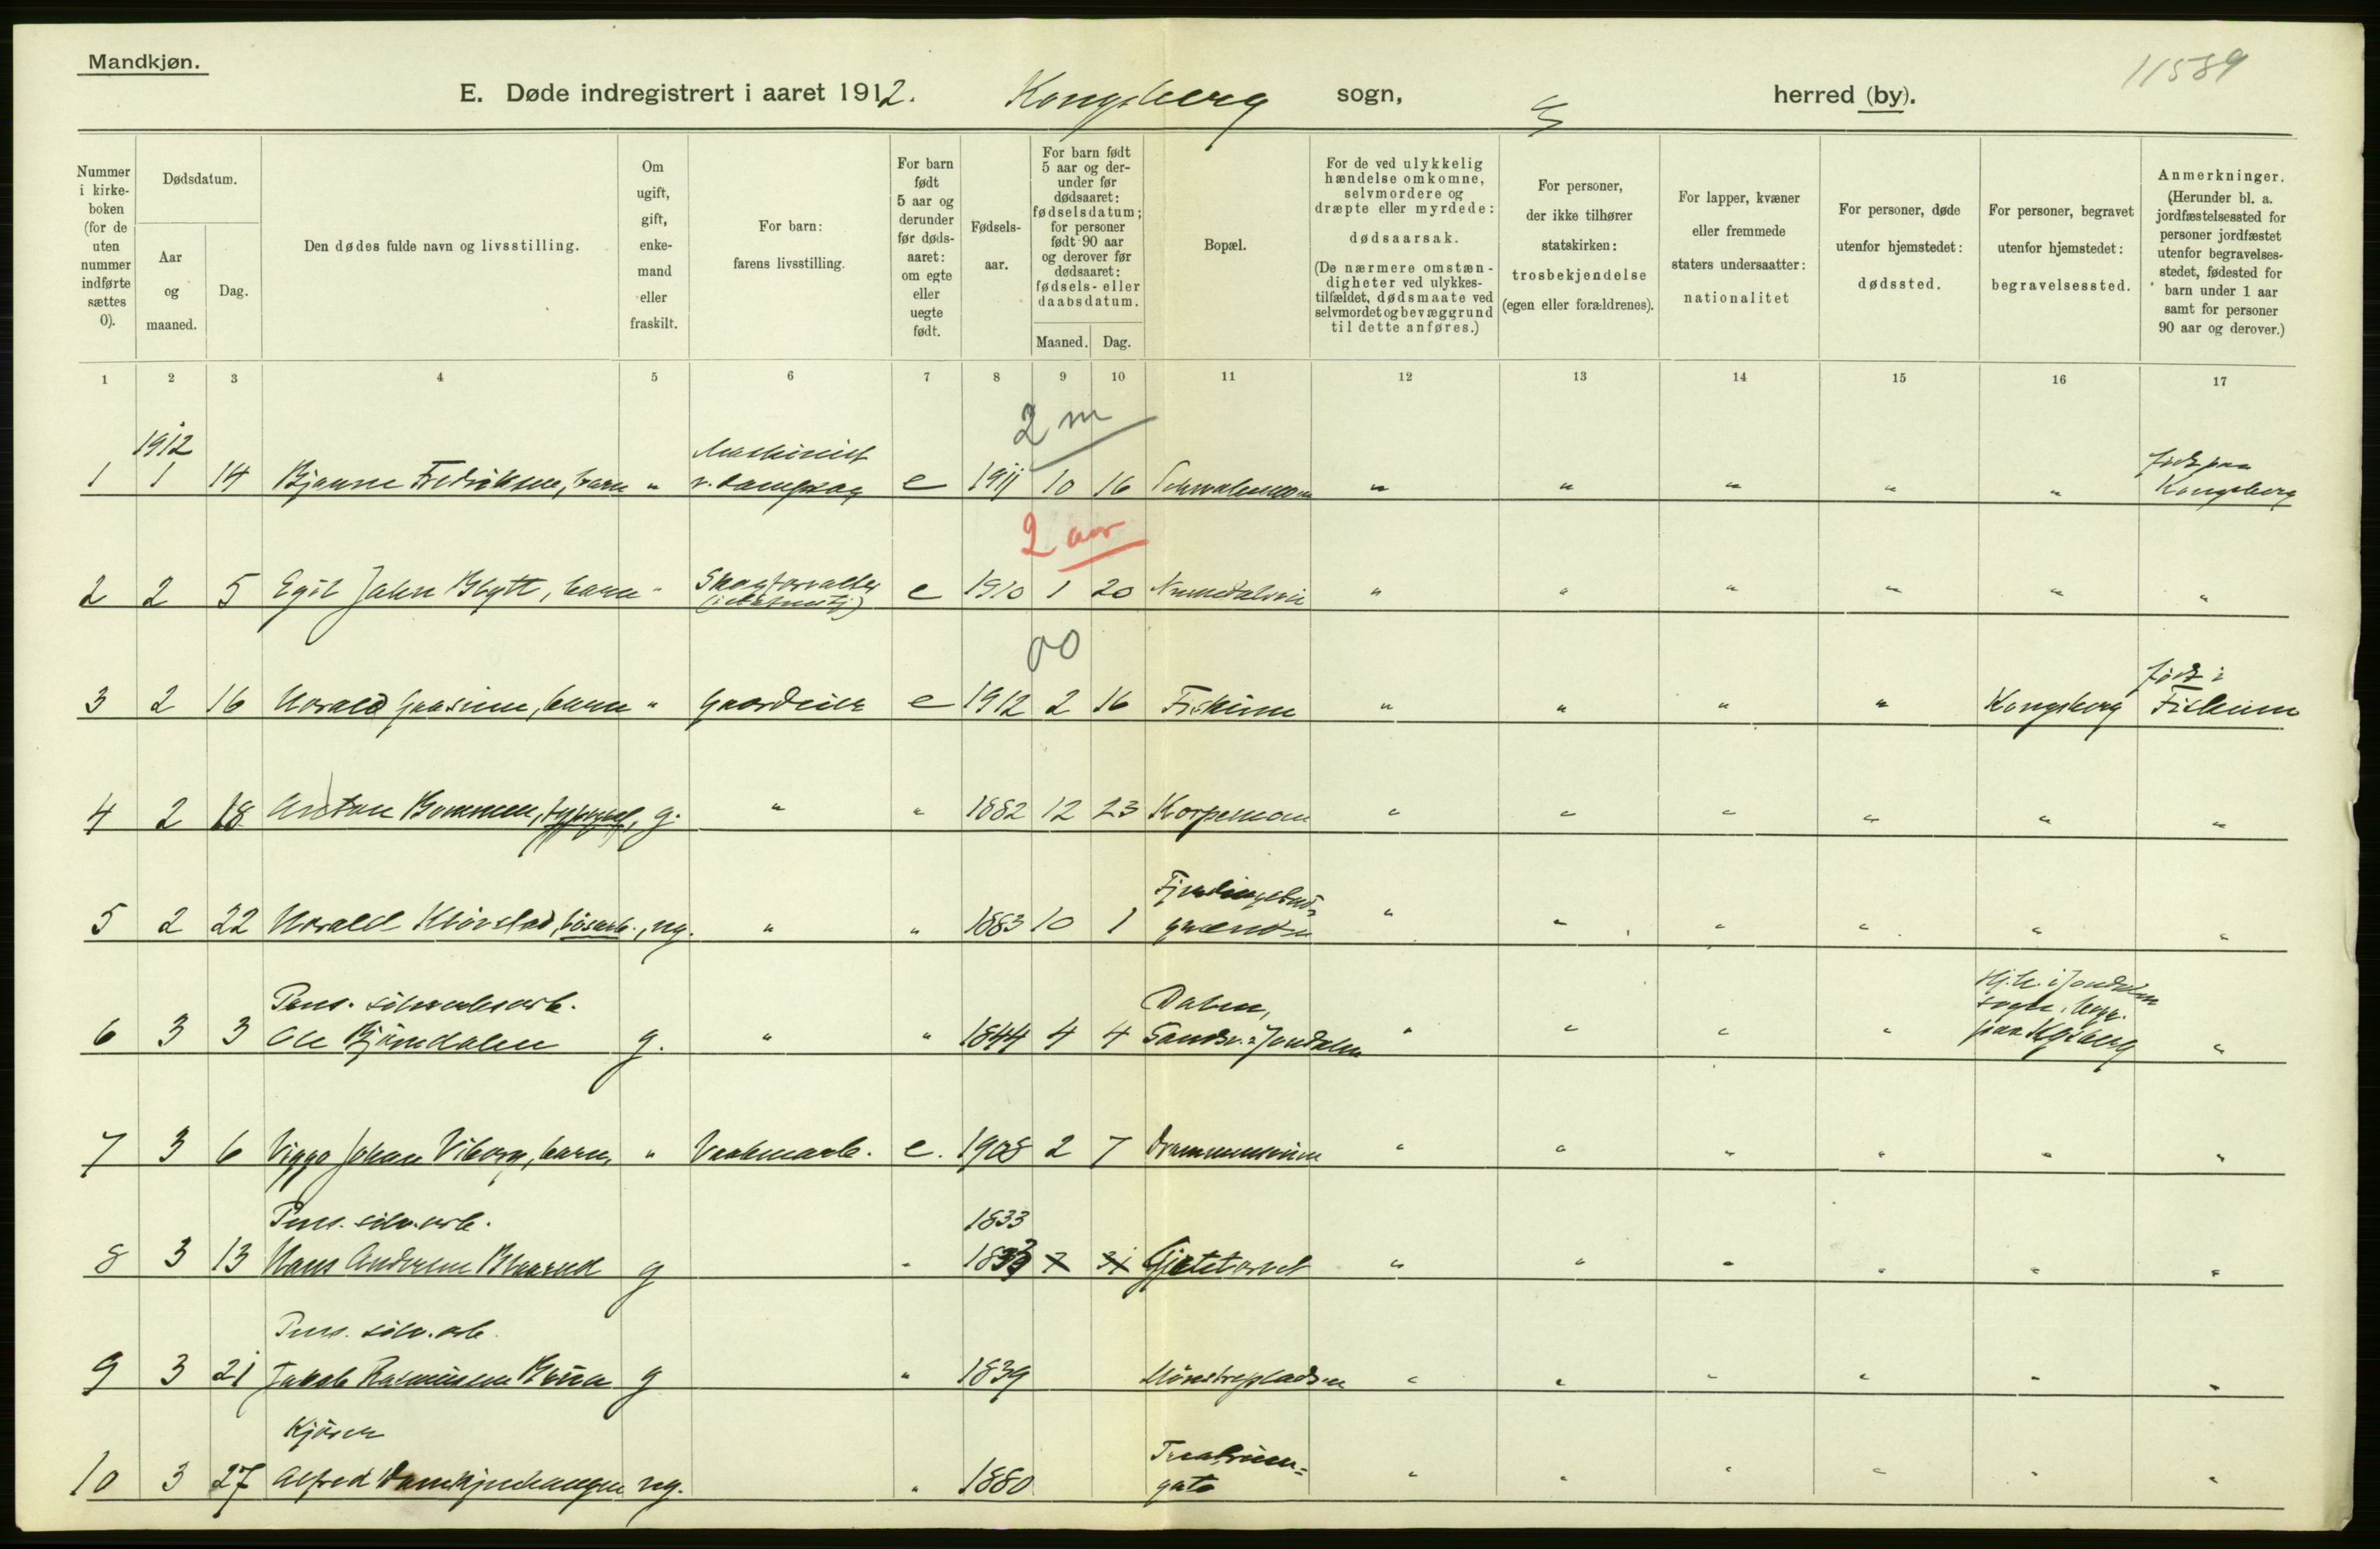 Mandkjøn.
11589
E. Døde indregistrert i aaret 1912. Kongsberg sogn, herred (by).
Nummer i kirkeboken (for de uten nummer indførte sættes 0).
Dødsdatum.
Aar og maaned.
Dag.
Den dødes fulde navn og livsstilling.
Om ugift, gift, enkemand eller fraskilt.
For barn: farens livsstilling.
For barn født 5 aar og derunder før dødsaaret: om egte eller uegte født.
Fødselsaar.
For barn født 5 aar og derunder før dødsaaret: fødselsdatum; for personer født 90 aar og derover før dødsaaret: fødsels- eller daabsdatum.
Maaned. Dag.
Bopæl.
For de ved ulykkelig hændelse omkomne, selvmordere og dræpte eller myrdede: dødsaarsak. (De nærmere omstændigheter ved ulykkestilfældet, dødsmaate ved selvmordet og bevæggrund til dette anføres.)
For personer, der ikke tilhører statskirken: trosbekjendelse (egen eller forældrenes).
For lapper, kvæner eller fremmede staters undersaatter: nationalitet
For personer, døde utenfor hjemstedet: dødssted.
For personer, begravet utenfor hjemstedet: begravelsessted.
Anmerkninger. (Herunder bl. a. jordfæstelsessted for personer jordfæstet utenfor begravelsesstedet, fødested for barn under 1 aar samt for personer 90 aar og derover.)
1 2 3 4 5 6 7 8 9 10 11 12 13 14 15 16 17
2 m
1912 Maskinist født paa
1 1 14 Bjarne Fredriksen, barn " v. dampsag e 1911 10 16 " " " " " Kongsberg
2 aar
2 2 5 Egil Jahn Blytt, barn " e 1910 1 20 Numedalsvei " " " " " "
00
født i
3 2 16 Harald Gaasum, barn " Gaardeier e 1912 2 16 Fiskum " " " " Kongsberg Fiskum
4 2 18 Anton Bommen, g. " " 1882 12 23 Korpemoen " " " " " "
5 2 22 Harald, ug. " " 1883 10 1 " " " " " "
Pens. sølvverksarb. Dalen,
6 3 3 Ole Bjørndalen g. " " 1844 4 4 Sandsv. Jondalen " " " " paa Kgsberg "
7 3 6 Viggo Johan Viborg, barn " Vaabenarb. e. 1908 2 7 " " " " " "
Pens. sølv.arb. 1833
8 3 13 Hans Andersen g " 1833 7 31 Gjetetorvet " " " " " "
Pens. sølv.arb.
9 3 21 Jakob Rasmussen g " 1839 Mønstrepladsen " " " " " "
10 3 27 Alfred ug. " 1880 gate " " " " " "